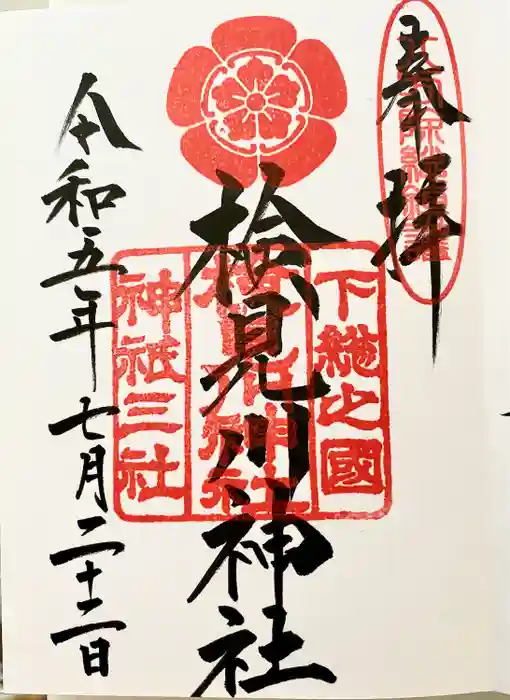 奉拝
検見川神社
下總之國
神祇三社
令和五年七月二十二日